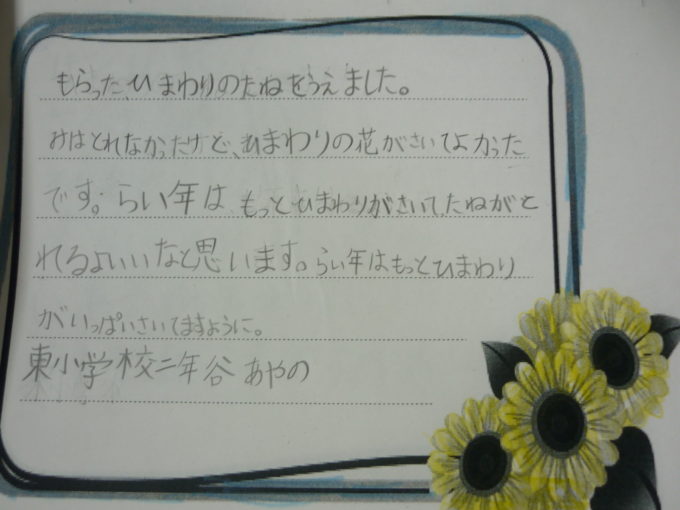 もらった、ひまわりのたねをうえました。
みはとれなかったけど、ひまわりの花がさいてよかった
です。らい年は、もっとひまわりがさいて、たねがと
れるよいいなと思います。らい年はもっとひまわり
がいっぱいさいてますように。
東小学校二年谷あやの